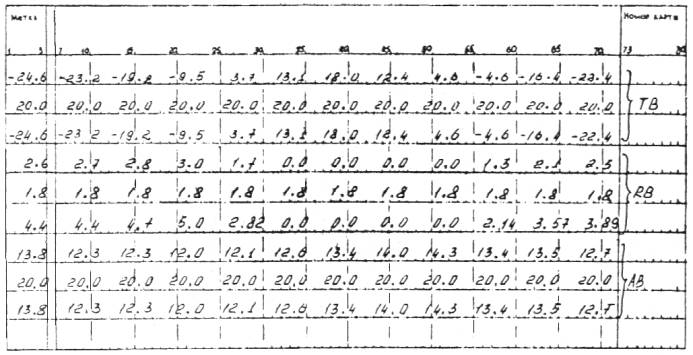 Метка Номер карты
1 5 7 10 15 20 25 30 35 40 45 50 55 60 65 70 73 80
-24.6 -23.2 -19.2 -9.5 3.7 13.1 18.0 12.4 4.6 -4.6 -16.4 -22.4
20.0 20.0 20.0 20.0 20.0 20.0 20.0 20.0 20.0 20.0 20.0 20.0 TB
-24.6 -23.2 -19.2 -9.5 3.7 13.1 18.0 12.4 4.6 -4.6 -16.4 -22.4
2.6 2.7 2.8 3.0 1.7 0.0 0.0 0.0 0.0 1.3 2.1 2.5
1.8 1.8 1.8 1.8 1.8 1.8 1.8 1.8 1.8 1.8 1.8 1.8 RB
4.4 4.4 4.7 5.0 2.82 0.0 0.0 0.0 0.0 2.14 3.57 3.89
13.8 12.3 12.3 12.0 12.1 12.8 13.4 14.0 14.3 13.4 13.5 12.7
20.0 20.0 20.0 20.0 20.0 20.0 20.0 20.0 20.0 20.0 20.0 20.0 AB
13.8 12.3 12.3 12.0 12.1 12.8 13.4 14.0 14.3 13.4 13.5 12.7